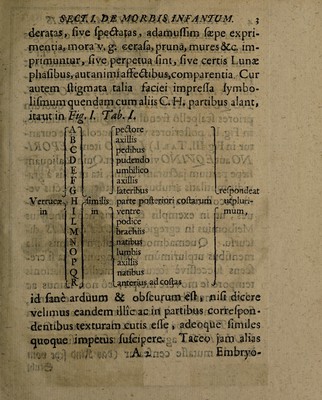 SECT. I. DE MORBIS INFANTUM. 3
deratas, sive spectatas, adamussim sæpe expri-
mentia, mora v. g. cerasa, pruna, mures &c. im-
primuntur, sive perpetua sint, sive certis Lunæ
phasibus, aut animi affectibus, comparentia. Cur
autem stigmata talia faciei impressa symbo-
lismum quendam cum aliis C. H. partibus alant,
ita ut in Fig. I. Tab. I.
A pectore
B axillis
C pedibus
D pudendo
E umbilico
F axillis
G lateribus respondeat
Verrucæ H similis parte posteriori costarum ut pluri-
in I in ventre mum,
L podice
M brachiis
N natibus
O lumbis
P axillis
Q natibus
R anterius ad costas
id sane arduum & obscurum est, nisi dicere
velimus eandem illic ac in partibus correspon-
dentibus texturam cutis esse, adeoque similes
quoque impetus suscipere. Taceo jam alias
A 2 Embryo-